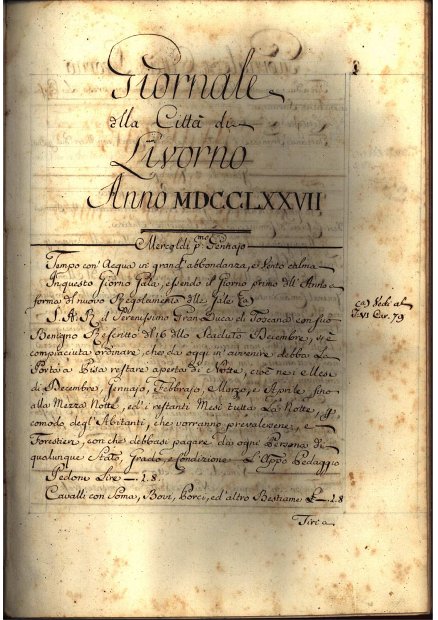 Giornale
dlla Città di
Livorno
Anno MDCCLXXVII
Mercoldì p.mo Gennajo
Tempo con' Acqua in' grand' abbondanza, e Vento calma
In questo Giorno Gala, essendo il Giorno primo dell' Anno e
forma del nuovo Regolamento dlle Gale (a)
(a) Vedi al
T. VI Car. 79
S. A. R. il Serenissimo Gran Duca di Toscana con suo
Benigno Rescritto del 16 dllo Scaduto Decembre, si è
compiaciuta ordinare, che da oggi in' avvenire debba La
Porta a Pisa restare aperta di Notte, cioè nei Mesi
di Decembre, Gennajo, Febbrajo e Marzo, e Aprile sino
alla Mezza Notte, ed i restanti Mesi tutta La Notte, p.
comodo degl' Abitanti, che vorranno prevalersene, e
Forestieri, con che debbasi pagare da ogni Persona di
qualunque Stato, Grado, e Condizione L'Appo Pedaggio
Pedone Lire — 1. 8
Cavalli con Soma, Bovi, Porci, ed' altro Bestiame L — 1. 8